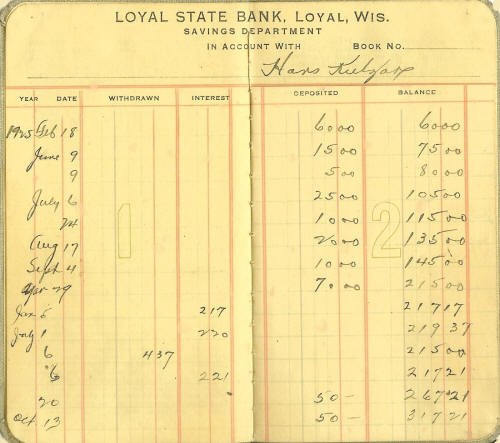 LOYAL STATE BANK, LOYAL, WIS.
SAVINGS DEPARTMENT
IN ACCOUNT WITH BOOK No.
Hans
YEAR DATE WITHDRAWN INTEREST DEPOSITED BALANCE
1925 Feb 18 60 00 60 00
June 9 15 00 75 00
9 5 00 80 00
July 6 25 00 105 00
24 10 00 115 00
Aug 17 20 00 135 00
Sept 4 10 00 145 00
29 70 00 215 00
Jan 5 2 17 217 17
July 1 2 20 219 37
6 4 37 215 00
"6 2 21 217 21
20 50 — 267 21
Oct 13 50 — 317 21
1
2